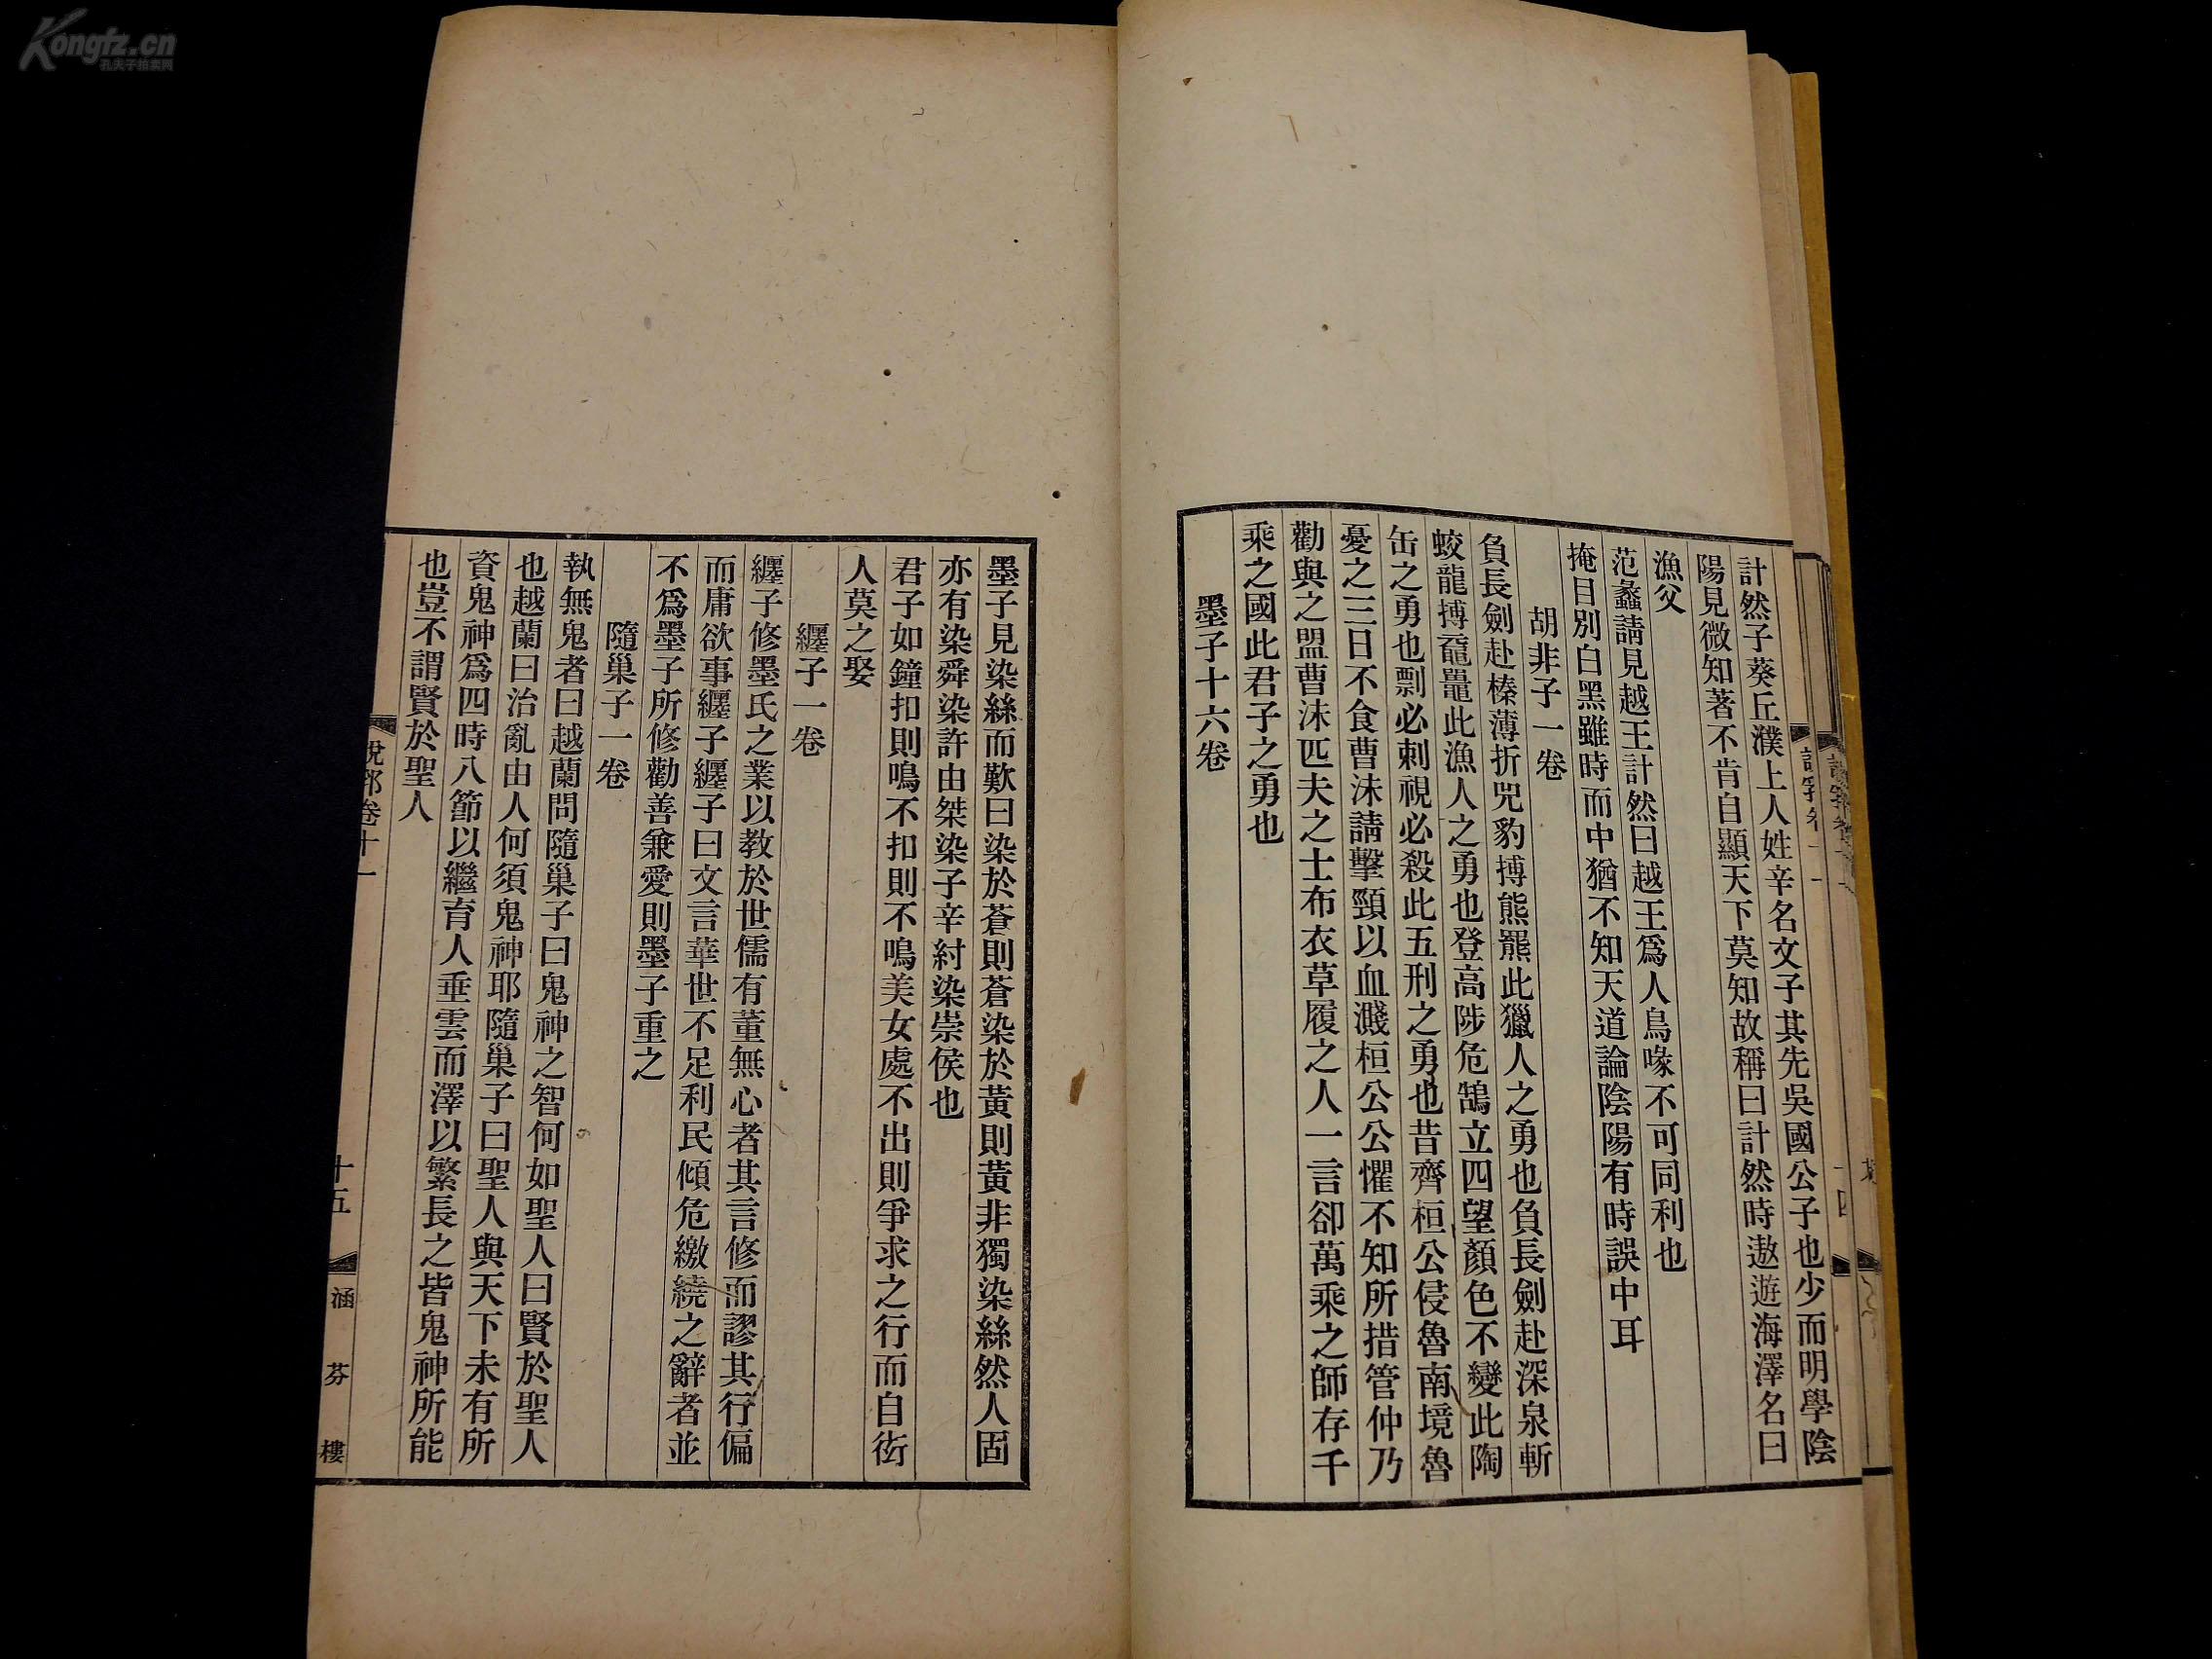 計然子葵丘濮上人姓辛名文子其先吳國公子也少而明學陰
陽見微知著不肯自顯天下莫知故稱曰計然時遨遊海澤名曰
漁父
范蠡請見越王計然曰越王爲人鳥喙不可同利也
掩目別白黑雖時而中猶不知天道論陰陽有時誤中耳
胡非子一卷
負長劍赴榛薄折兕豹搏熊羆此獵人之勇也負長劍赴深泉斬
蛟龍搏黿鼉此漁人之勇也登高陟危鵠立四望顏色不變此陶
缶之勇也剽必刺視必殺此五刑之勇也昔齊桓公侵魯南境魯
憂之三日不食曹沫請擊頸以血濺桓公公懼不知所措管仲乃
勸與之盟曹沫匹夫之士布衣草履之人一言卻萬乘之師存千
乘之國此君子之勇也
墨子十六卷
墨子見染絲而歎曰染於蒼則蒼染於黃則黃非獨染絲然人固
亦有染舜染許由桀染子辛紂染崇侯也
君子如鐘扣則鳴不扣則不鳴美女處不出則爭求之行而自衒
人莫之娶
纏子一卷
纏子修墨氏之業以教於世儒有董無心者其言修而謬其行偏
而庸欲事纏子纏子曰文言華世不足利民傾危繳繞之辭者並
不爲墨子所修勸善兼愛則墨子重之
隨巢子一卷
執無鬼者曰越蘭問隨巢子曰鬼神之智何如聖人曰賢於聖人
也越蘭曰治亂由人何須鬼神耶隨巢子曰聖人與天下未有所
資鬼神爲四時八節以繼育人垂雲而澤以繁長之皆鬼神所能
也豈不謂賢於聖人
說郛卷十一
十五
涵芬樓
Kongfz.cn
孔夫子拍卖网